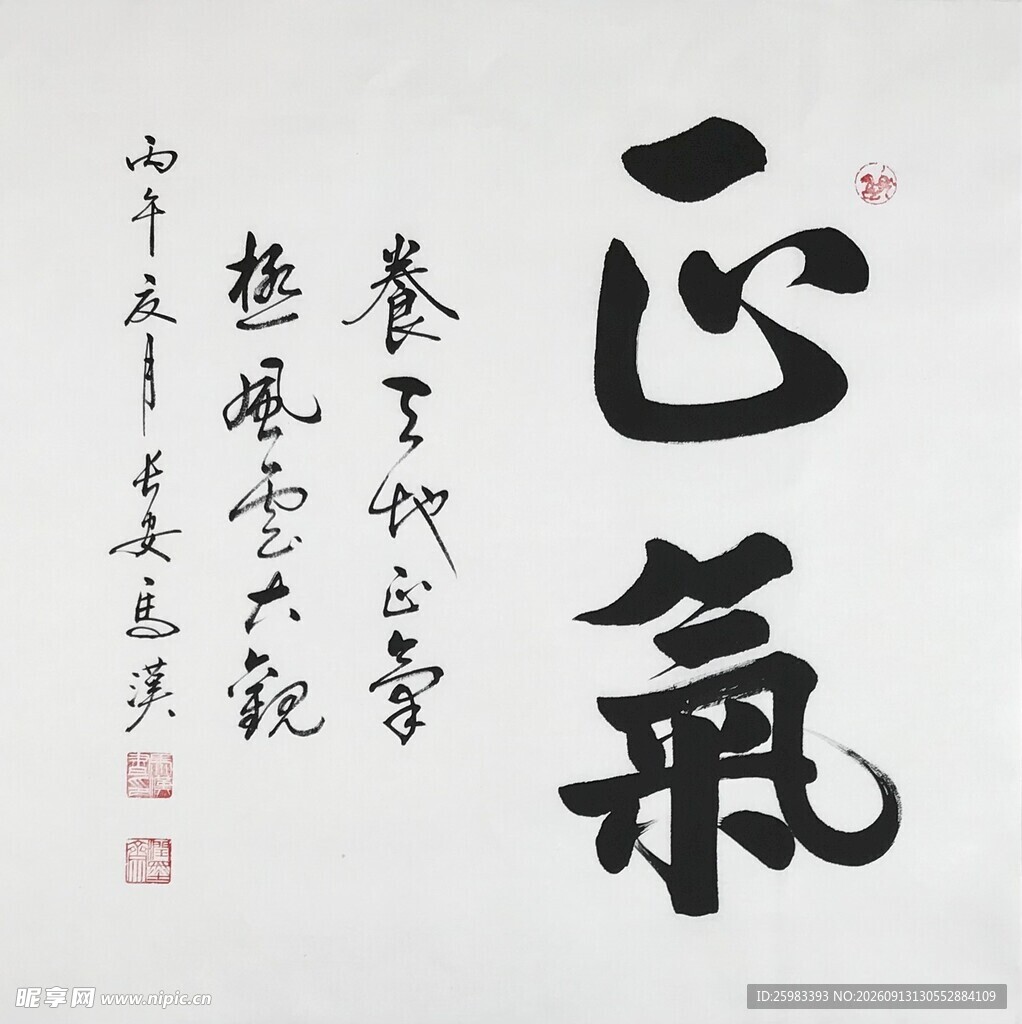 正
氣
養天地正氣
極風雲大觀
丙午夏月長安馬漢
昵享网 www.nipic.cn
ID:25983393 NO:20260913130552884109